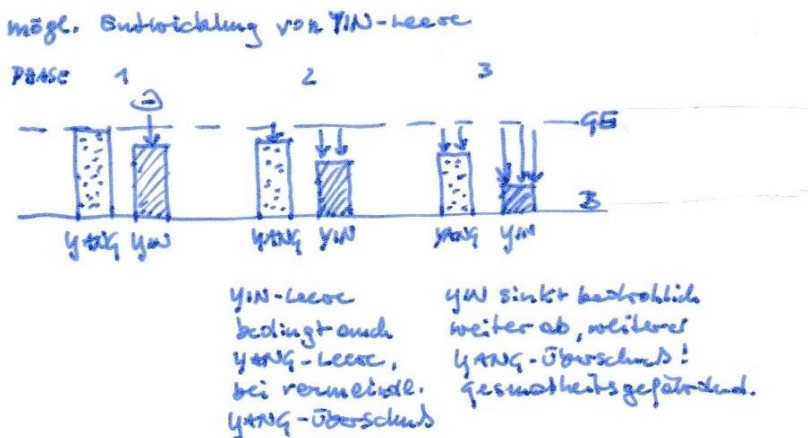 mögl. Entwicklung von YIN-Leere
PHASE 1 2 3
GE
B
YANG YIN YANG YIN YANG YIN
YIN-Leere
bedingt auch
YANG-Leere,
bei vermeindl.
YANG-Überschuß
YIN sinkt bedrohlich
weiter ab, weiterer
YANG-Überschuß!
gesundheitsgefährdend.